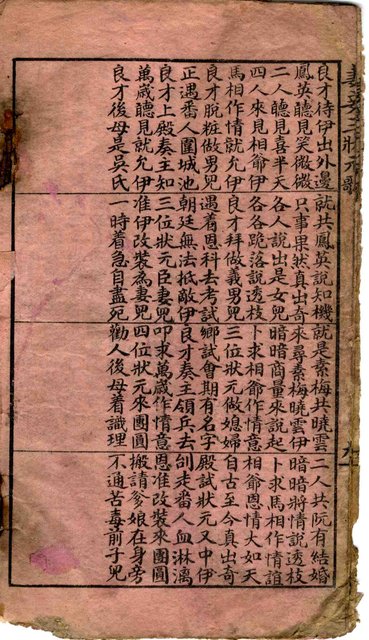 三狀元歌
良才待伊出外邊 就共鳳英說知機 就是素梅共曉雲 二人共阮有結婚
鳳英聽見笑微微 只事果然真出奇 來尋素梅曉雲伊 暗暗將情說透枝
二人聽見喜半天 各人說出是女兒 暗暗商量來說起 卜求馬相作情誼
四人來見相爺伊 各各跪落說透枝 卜求相爺作情意 相爺恩情大如天
馬相作情就允伊 良才拜做義男兒 三位狀元做媳婦 自古至今真出奇
良才脫粧做男兒 遇着恩科去考試 鄉試會期有名字 殿試狀元又中伊
正遇畨人圍城池 朝廷無法抵敵伊 良才奏主領兵去 刣走畨人血淋漓
良才上殿奏主知 三位狀元臣妻兒 叩求萬歲作情意 恩准改裝來團圓
萬歲聽見就允伊 准伊改裝為妻兒 四位狀元來團圓 搬請爹娘在身旁
良才後母是吳氏 一時着急自盡死 勸人後母着識理 不通苦毒前子兒